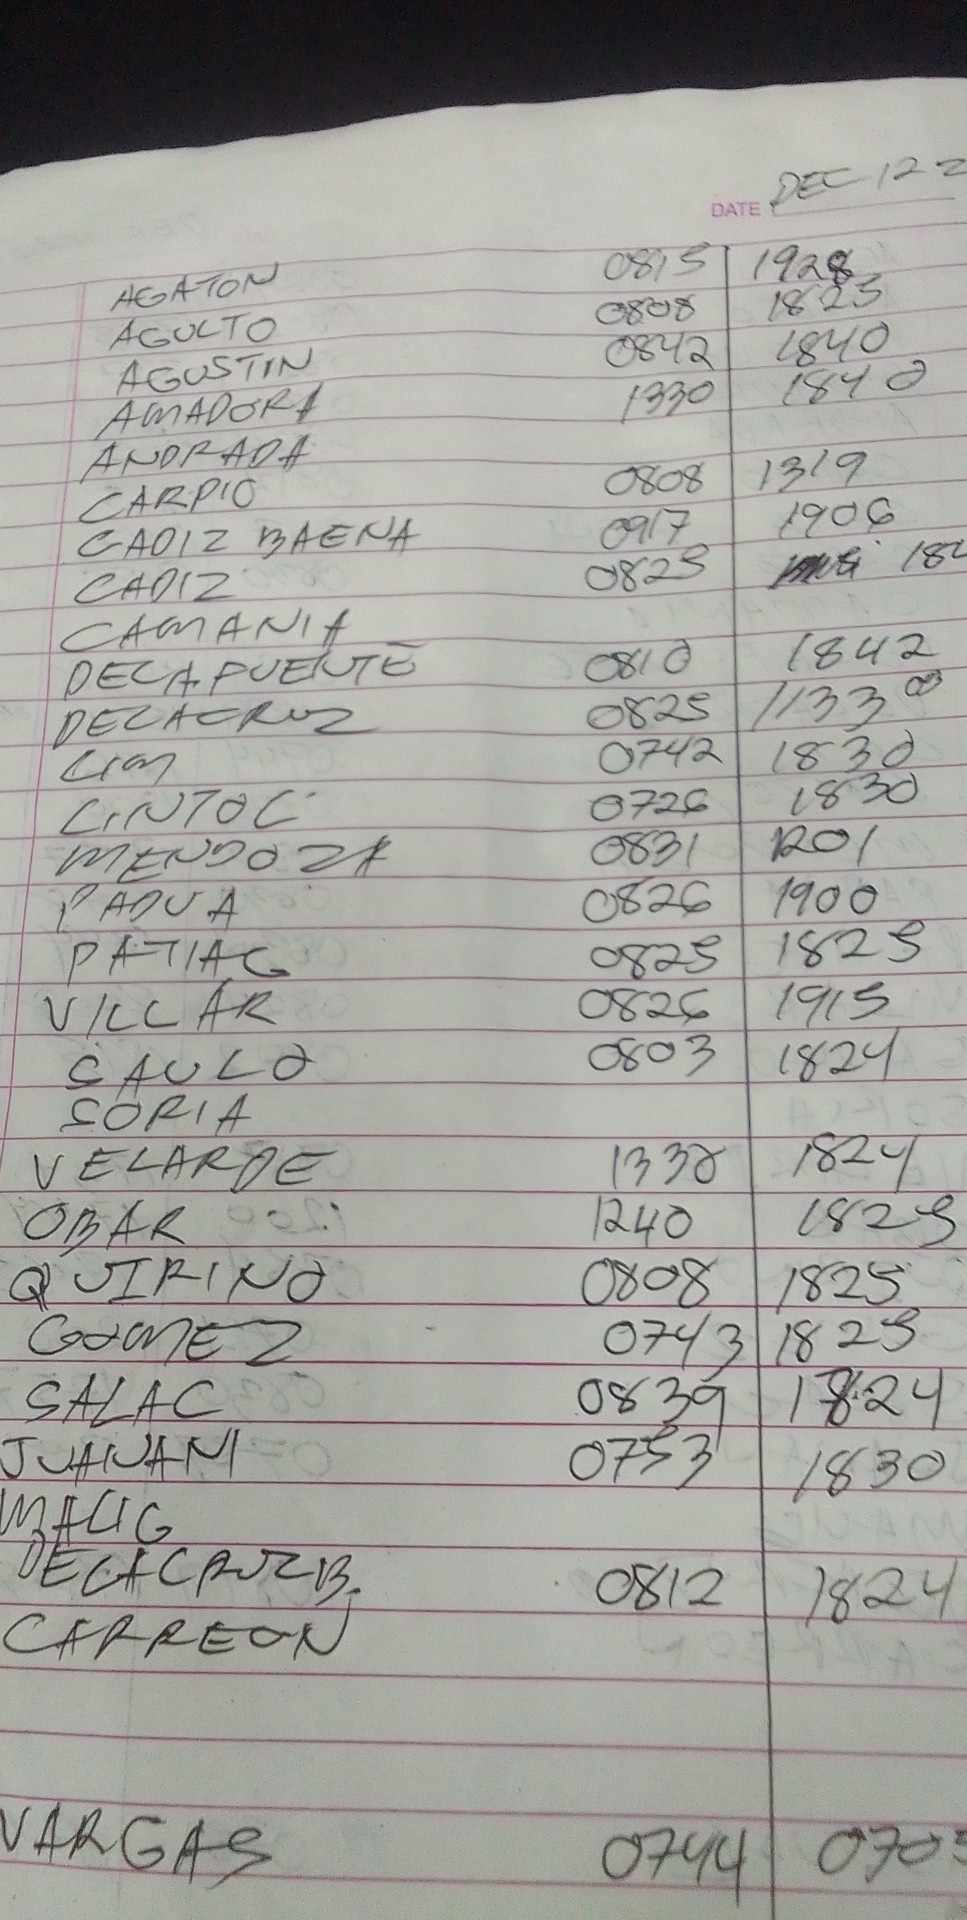 DATE DEC 12 2
AGATON 0815 1928
AGULTO 0808 1825
AGUSTIN 0842 1840
AMADORA 1330 1840
ANDRADA
CARPIO 0808 1319
CADIZ BAENA 0917 1906
CADIZ 0825 184
CAMANIA
DELA PUENTE 0810 1842
DELACRUZ 0825 1133
LIM 0742 1830
LINTOC 0726 1830
MENDOZA 0831 1201
PADUA 0826 1900
PATIAG 0825 1825
VILLAR 0826 1915
SAULO 0803 1824
SORIA
VELARDE 1330 1824
OBAR 1240 1825
QUIRINO 0808 1825
GOMEZ 0743 1825
SALAC 0839 1824
JUANANI 0753 1830
MALIG
DELACRUZ B. 0812 1824
CARREON
VARGAS 0744 0705